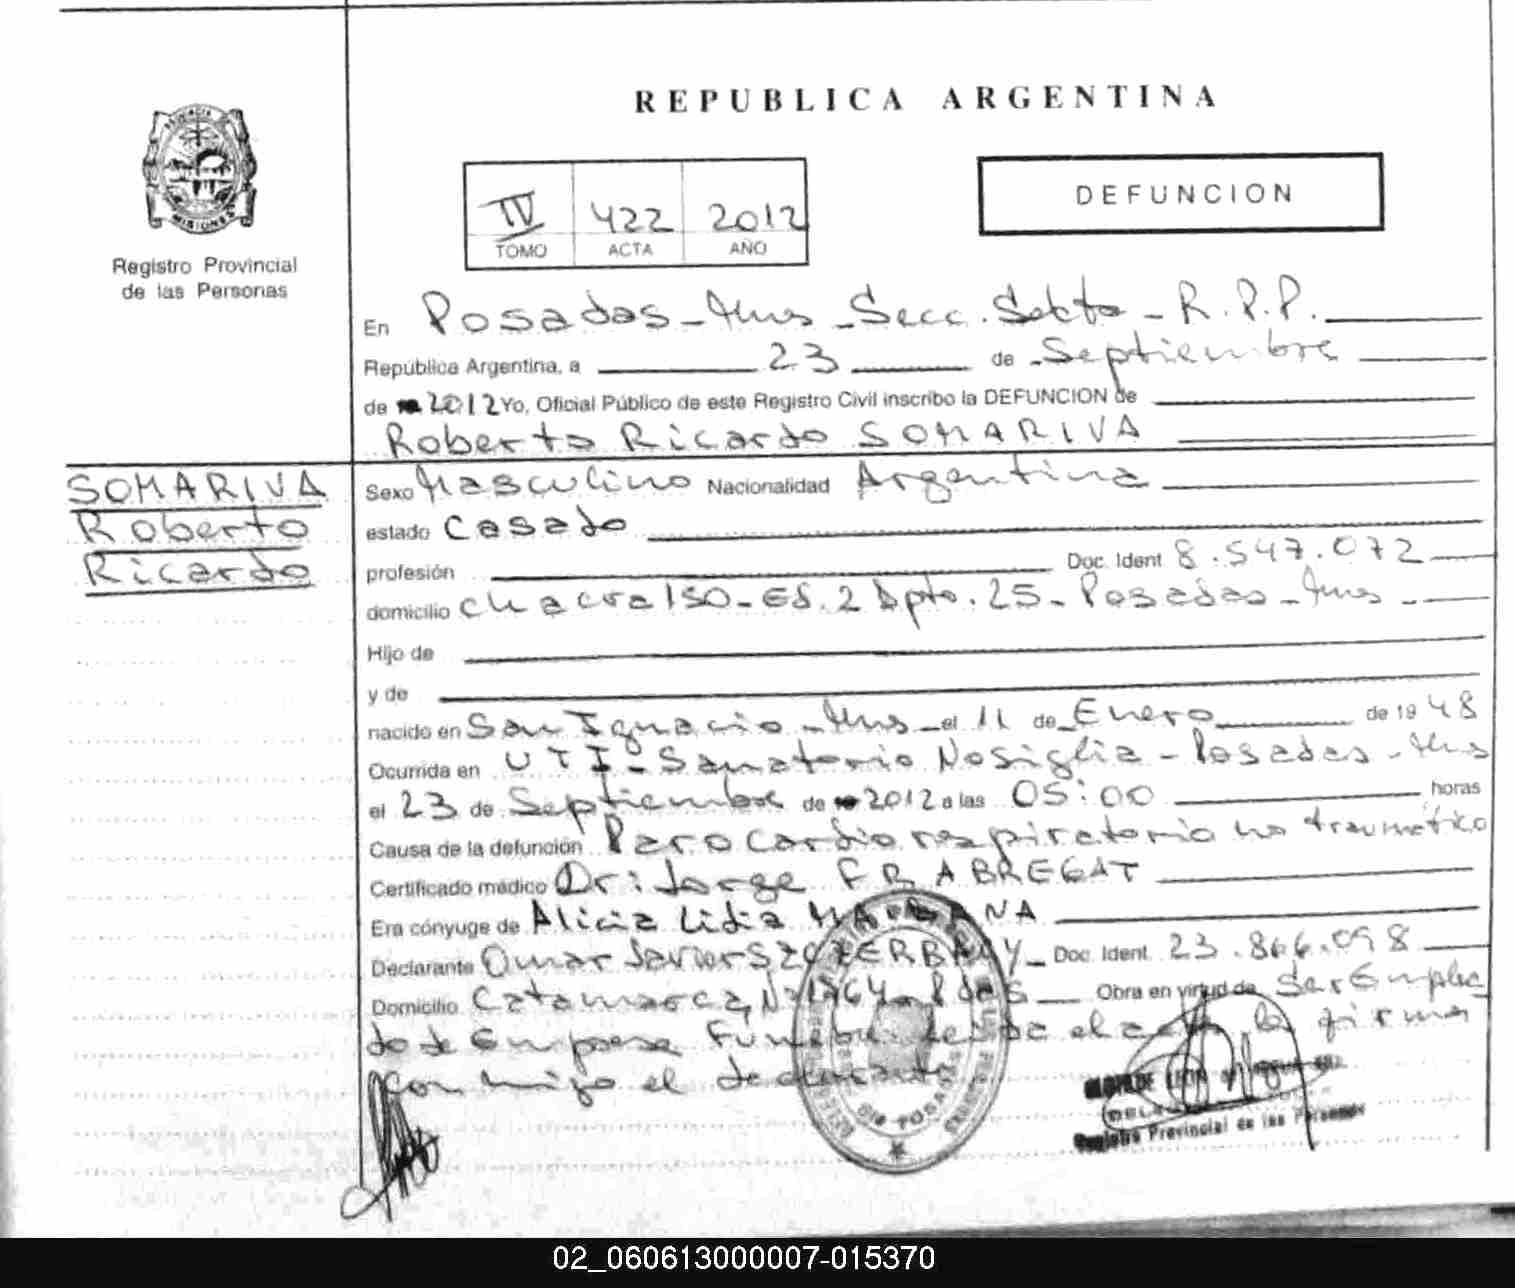 REPUBLICA ARGENTINA
PROVINCIA
MISIONES
Registro Provincial
de las Personas
IV 422 2012
TOMO ACTA AÑO
DEFUNCION
En Posadas - Mnes - Secc. Sexta - R.P.P.
República Argentina, a 23 de Septiembre
de 2012 Yo, Oficial Público de este Registro Civil inscribo la DEFUNCION de
Roberto Ricardo SOMARIVA
SOMARIVA
Roberto
Ricardo
Sexo Masculino Nacionalidad Argentina
estado Casado
profesión Doc. Ident 8.547.072
domicilio Chacra 150 - Ed. 2 Dpto. 25 - Posadas - Mnes -
Hijo de
y de
nacido en San Ignacio - Mnes - el 11 de Enero de 1948
Ocurrida en UTI - Sanatorio Nosiglia - Posadas - Mnes
el 23 de Septiembre de 2012 a las 05:00 horas
Causa de la defunción Paro cardio respiratorio no traumático
Certificado médico Dr: Jorge FRABREGAT
Era cónyuge de Alicia Lidia
Declarante Omar Javier Doc. Ident. 23.866.098
Domicilio Catamarca Nº 1764 - Pdas Obra en virtud de Ser Emplea
do de Empresa Funebre leida el acta la firma
conmigo el declarante
Registro Provincial de las Personas
02_060613000007-015370